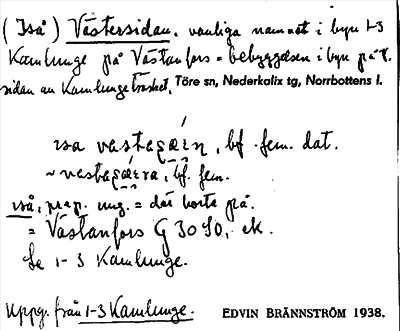 (Iså) Västersidan, vanliga namnet i byn 1-3
Kamlunge på Västanfors = bebyggelsen i byn på v.
sidan av Kamlungeträsket. Töre sn, Nederkalix tg, Norrbottens l.
ɪsa vastaʂǽɪn, bf. fem. dat.
~ vastaʂǽɪra, bf. fem.
iså, prep. ung. = där borta på.
= Västanfors G 3090, ek.
Se 1-3 Kamlunge.
Uppg. från 1-3 Kamlunge. EDVIN BRÄNNSTRÖM 1938.